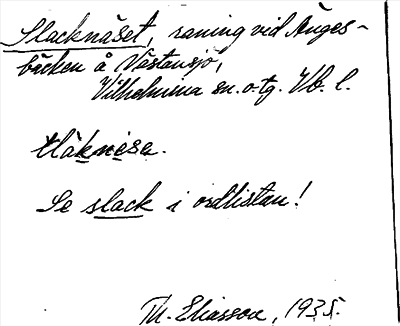 Slacknäset, raning vid Ånges-
bäcken å Västansjö,
Vilhelmina sn. o. tg. Vb. l.
Se slack i ordlistan!
Th. Eliasson, 1935.